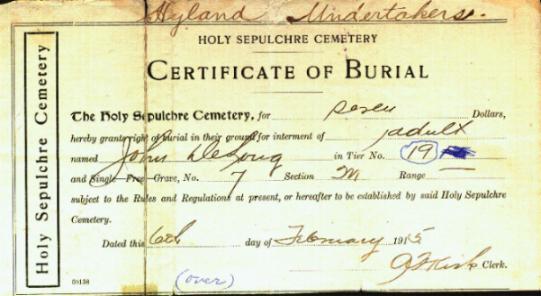 Hyland Undertakers.
HOLY SEPULCHRE CEMETERY
CERTIFICATE OF BURIAL
Holy Sepulchre Cemetery
The Holy Sepulchre Cemetery, for seven Dollars,
hereby grants right of burial in their ground for interment of adult
named John DeLong in Tier No. 19
and Single Free Grave, No. 7 Section M Range —
subject to the Rules and Regulations at present, or hereafter to be established by said Holy Sepulchre
Cemetery.
Dated this 6th day of February 1915
Kirk Clerk.
(over)